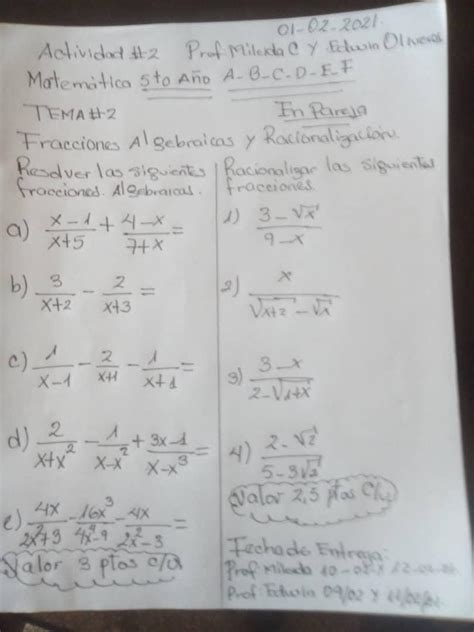 01-02-2021
Actividad #2 Prof: Mileida C y Edwin Oliveros
Matemática 5to Año A-B-C-D-E-F
TEMA #2 En Pareja
Fracciones Algebraicas y Racionalización.
Resolver las siguientes fracciones Algebraicas.
a) (x-1)/(x+5) + (4-x)/(7+x) =
b) 3/(x+2) - 2/(x+3) =
c) 1/(x-1) - 2/(x+1) - 1/(x+1) =
d) 2/(x+x²) - 1/(x-x²) + (3x-1)/(x-x³) =
e) 4x/(2x²+3) - 16x³/(4x⁴-9) - 4x/(2x²-3) =
Valor 3 ptos c/u
Racionalizar las siguientes fracciones.
1) (3-√x)/(9-x)
2) x/(√(x+2)-√x)
3) (3-x)/(2-√(1+x))
4) (2-√2)/(5-3√2)
Valor 2,5 ptos c/u
Fecha de Entrega:
Prof: Mileida 10-02 y
Prof: Edwin 09/02 y